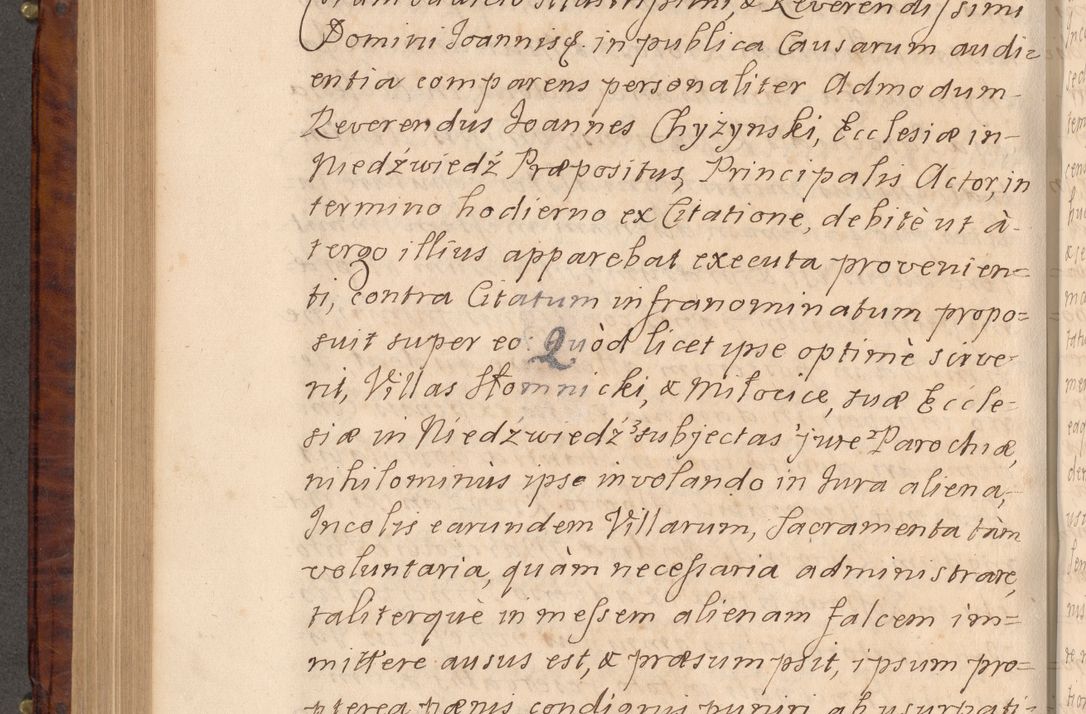 Coram officio Illustrissimi, & Reverendissimi
Domini Joannis &. in publica Causarum audi=
entia comparens personaliter Admodum
Reverendus Joannes Chyżynski, Ecclesiæ in
Niedźwiedź Præpositus, Principalis Actor, in
termino hodierno ex Citatione, debitè ut à
tergo illius apparebat executa provenien=
ti, contra Citatum infranominatum propo=
suit super eo: Quòd licet ipse optimè scive=
rit, Villas Słomnicki, & Miłocice, suæ Eccle=
siæ in Niedźwiedź ³subjectas ¹jure ²Parochiæ,
nihilominùs ipse involando in Jura aliena,
Incolis earundem Villarum, Sacramenta tàm
voluntaria, quàm necessaria administrare,
taliterquè in messem alienam falcem im=
mittere ausus est, & præsumpsit, ipsum pro=
pterea pænis condignis puniri, ab usurpati=